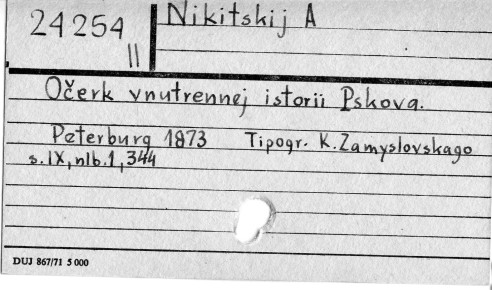 24254
II
Nikitskij A
Očerk vnutrennej istorii Pskova.
Peterburg 1873 Tipogr. K. Zamyslovskago
s. IX, nlb. 1, 344
DUJ 867/71 5 000